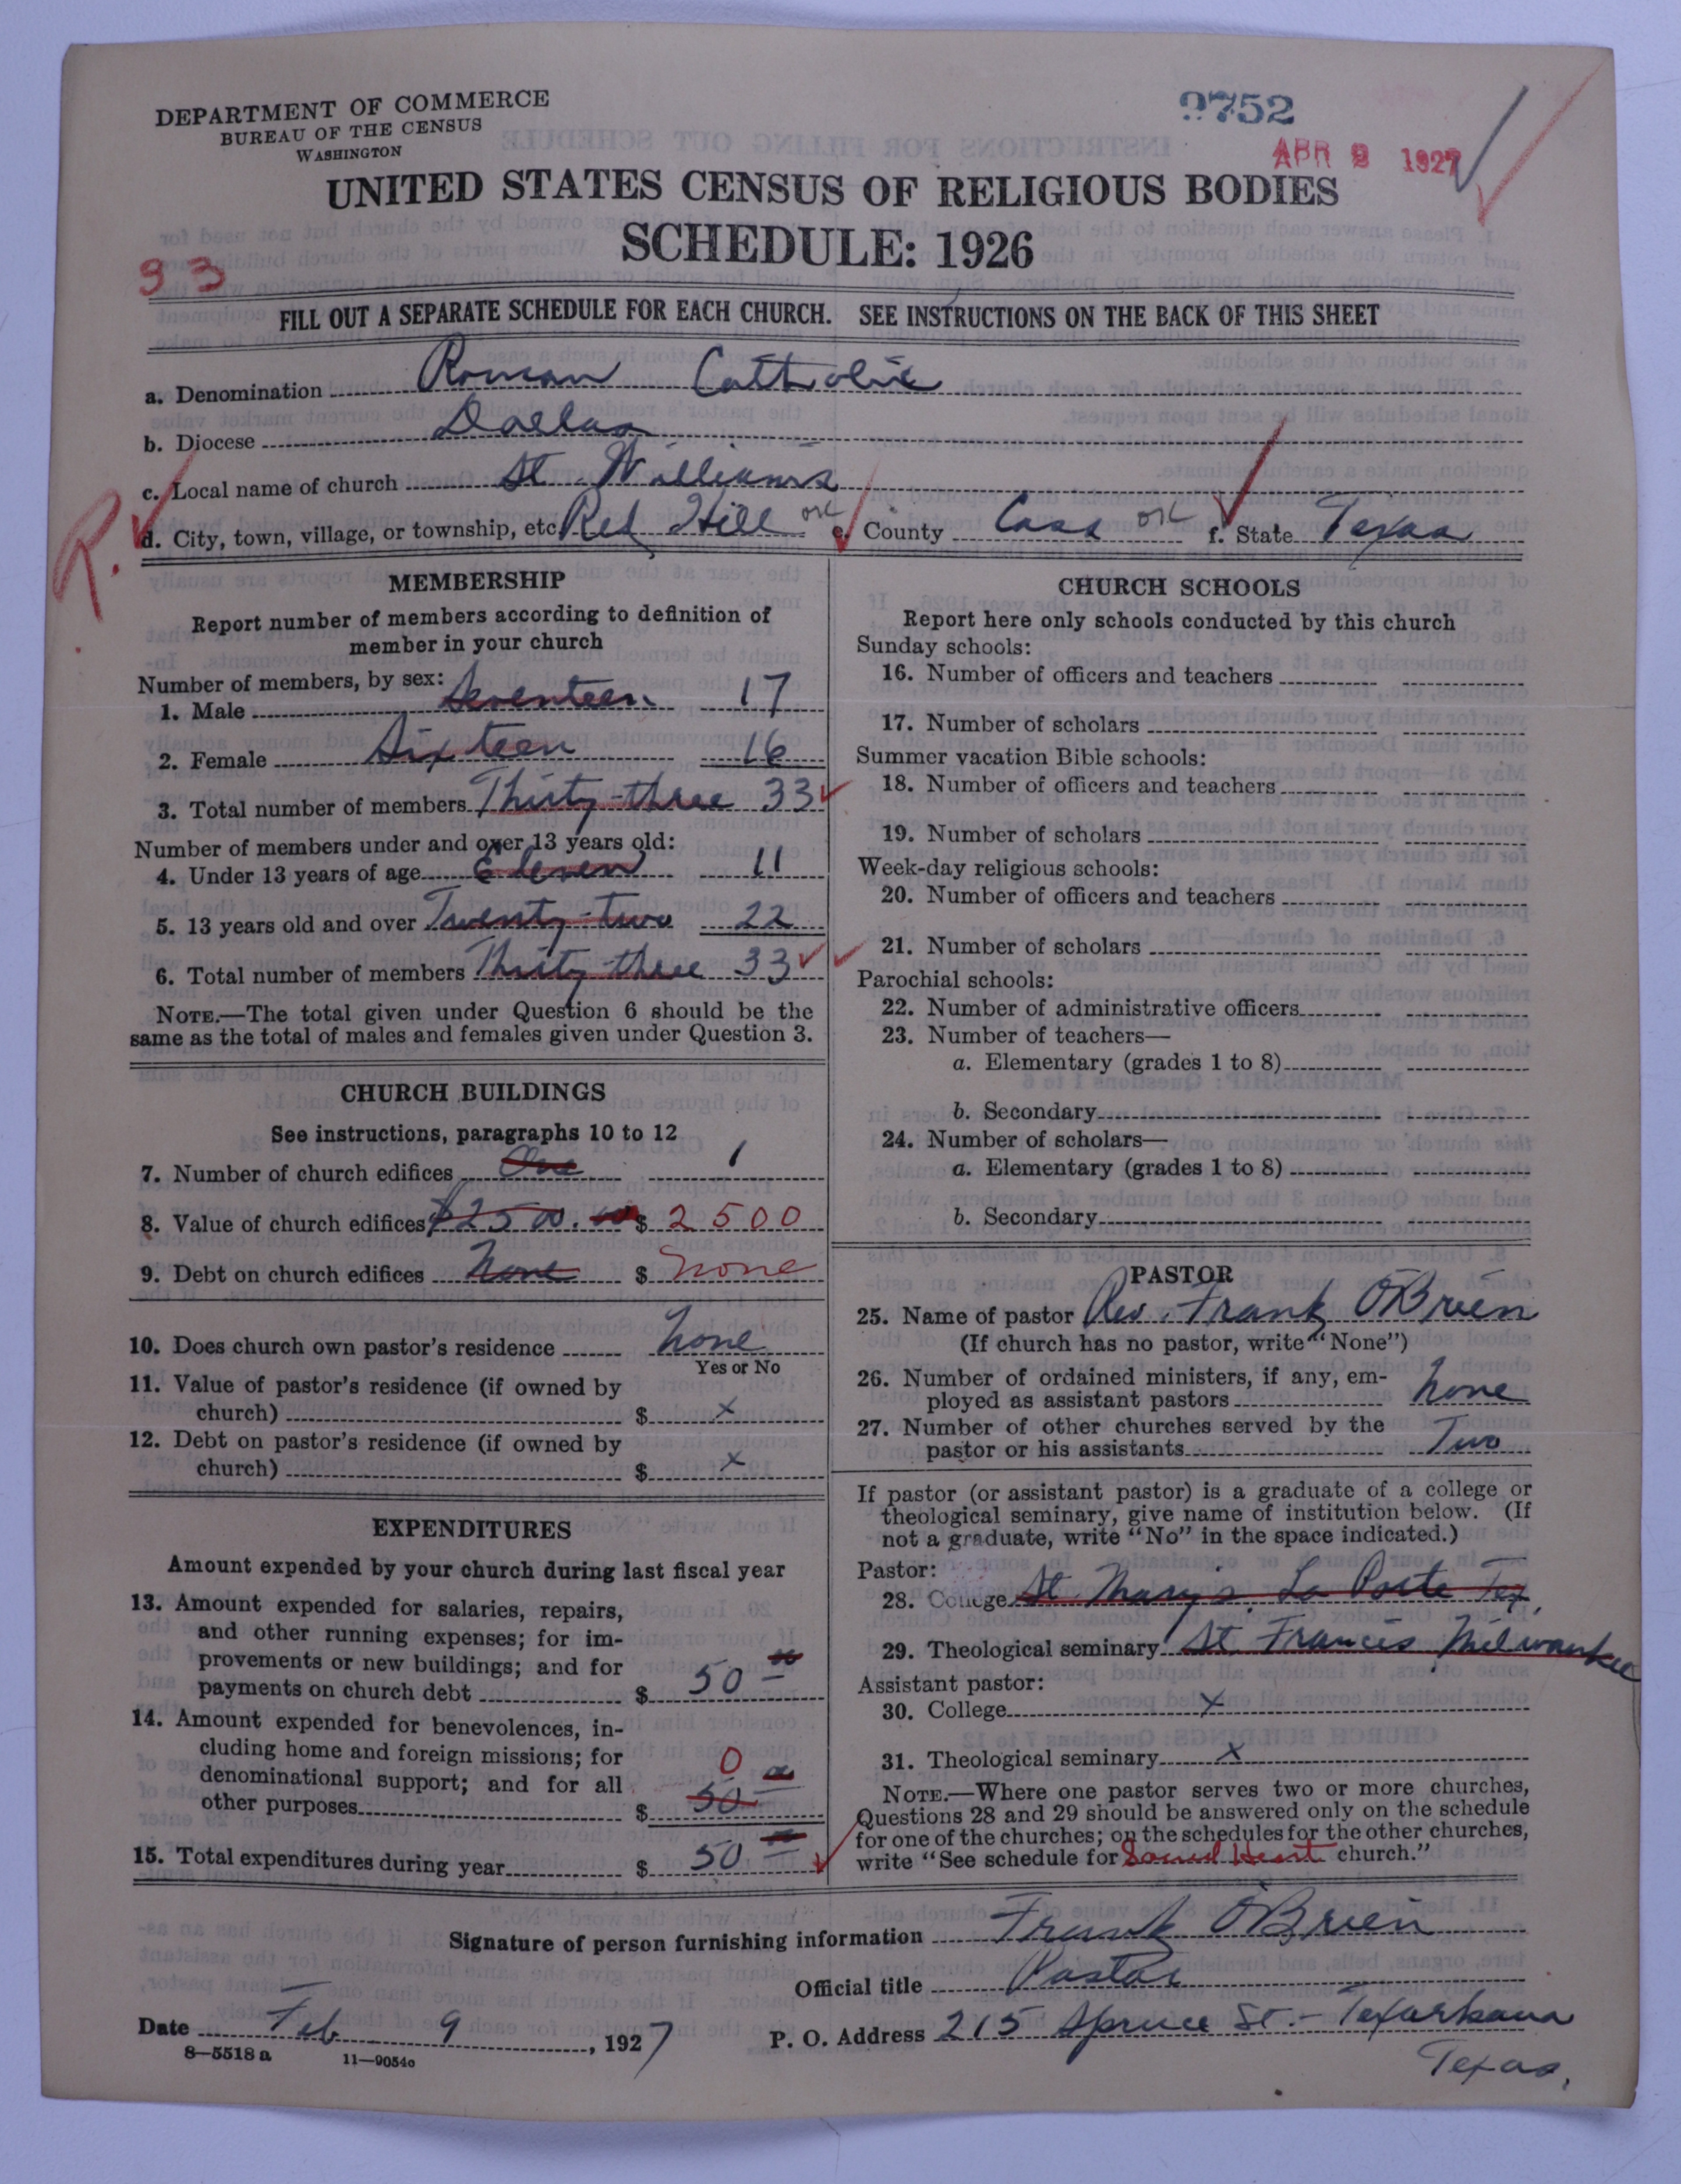 DEPARTMENT OF COMMERCE
BUREAU OF THE CENSUS
WASHINGTON
9752
APR 9 1927
UNITED STATES CENSUS OF RELIGIOUS BODIES
SCHEDULE: 1926
93
FILL OUT A SEPARATE SCHEDULE FOR EACH CHURCH. SEE INSTRUCTIONS ON THE BACK OF THIS SHEET
a. Denomination Roman Catholic
b. Diocese Dallas
c. Local name of church St. Williams
R. d. City, town, village, or township, etc. Red Hill OK e. County Cass OK f. State Texas
MEMBERSHIP
Report number of members according to definition of
member in your church
Number of members, by sex:
1. Male Seventeen 17
2. Female Sixteen 16
3. Total number of members Thirty-three 33
Number of members under and over 13 years old:
4. Under 13 years of age Eleven 11
5. 13 years old and over Twenty-two 22
6. Total number of members Thirty three 33
NOTE.—The total given under Question 6 should be the
same as the total of males and females given under Question 3.
CHURCH BUILDINGS
See instructions, paragraphs 10 to 12
7. Number of church edifices One 1
8. Value of church edifices $2500.00 $ 2500
9. Debt on church edifices None $ none
10. Does church own pastor's residence none
Yes or No
11. Value of pastor's residence (if owned by
church) $ x
12. Debt on pastor's residence (if owned by
church) $ x
EXPENDITURES
Amount expended by your church during last fiscal year
13. Amount expended for salaries, repairs,
and other running expenses; for im-
provements or new buildings; and for
payments on church debt $ 50
14. Amount expended for benevolences, in-
cluding home and foreign missions; for
denominational support; and for all 0
other purposes $ 50
15. Total expenditures during year $ 50
CHURCH SCHOOLS
Report here only schools conducted by this church
Sunday schools:
16. Number of officers and teachers
17. Number of scholars
Summer vacation Bible schools:
18. Number of officers and teachers
19. Number of scholars
Week-day religious schools:
20. Number of officers and teachers
21. Number of scholars
Parochial schools:
22. Number of administrative officers
23. Number of teachers—
a. Elementary (grades 1 to 8)
b. Secondary
24. Number of scholars—
a. Elementary (grades 1 to 8)
b. Secondary
PASTOR
25. Name of pastor Rev. Frank O'Brien
(If church has no pastor, write "None")
26. Number of ordained ministers, if any, em-
ployed as assistant pastors none
27. Number of other churches served by the
pastor or his assistants Two
If pastor (or assistant pastor) is a graduate of a college or
theological seminary, give name of institution below. (If
not a graduate, write "No" in the space indicated.)
Pastor:
28. College St. Mary's. La Porte Tex.
29. Theological seminary St. Francis, Milwaukee
Assistant pastor:
30. College x
31. Theological seminary x
NOTE.—Where one pastor serves two or more churches,
Questions 28 and 29 should be answered only on the schedule
for one of the churches; on the schedules for the other churches,
write "See schedule for Sacred Heart church."
Signature of person furnishing information Frank O'Brien
Official title Pastor
Date Feb 9, 1927 P. O. Address 215 Spruce St. - Texarkana
Texas.
8—5518 a 11—9054c